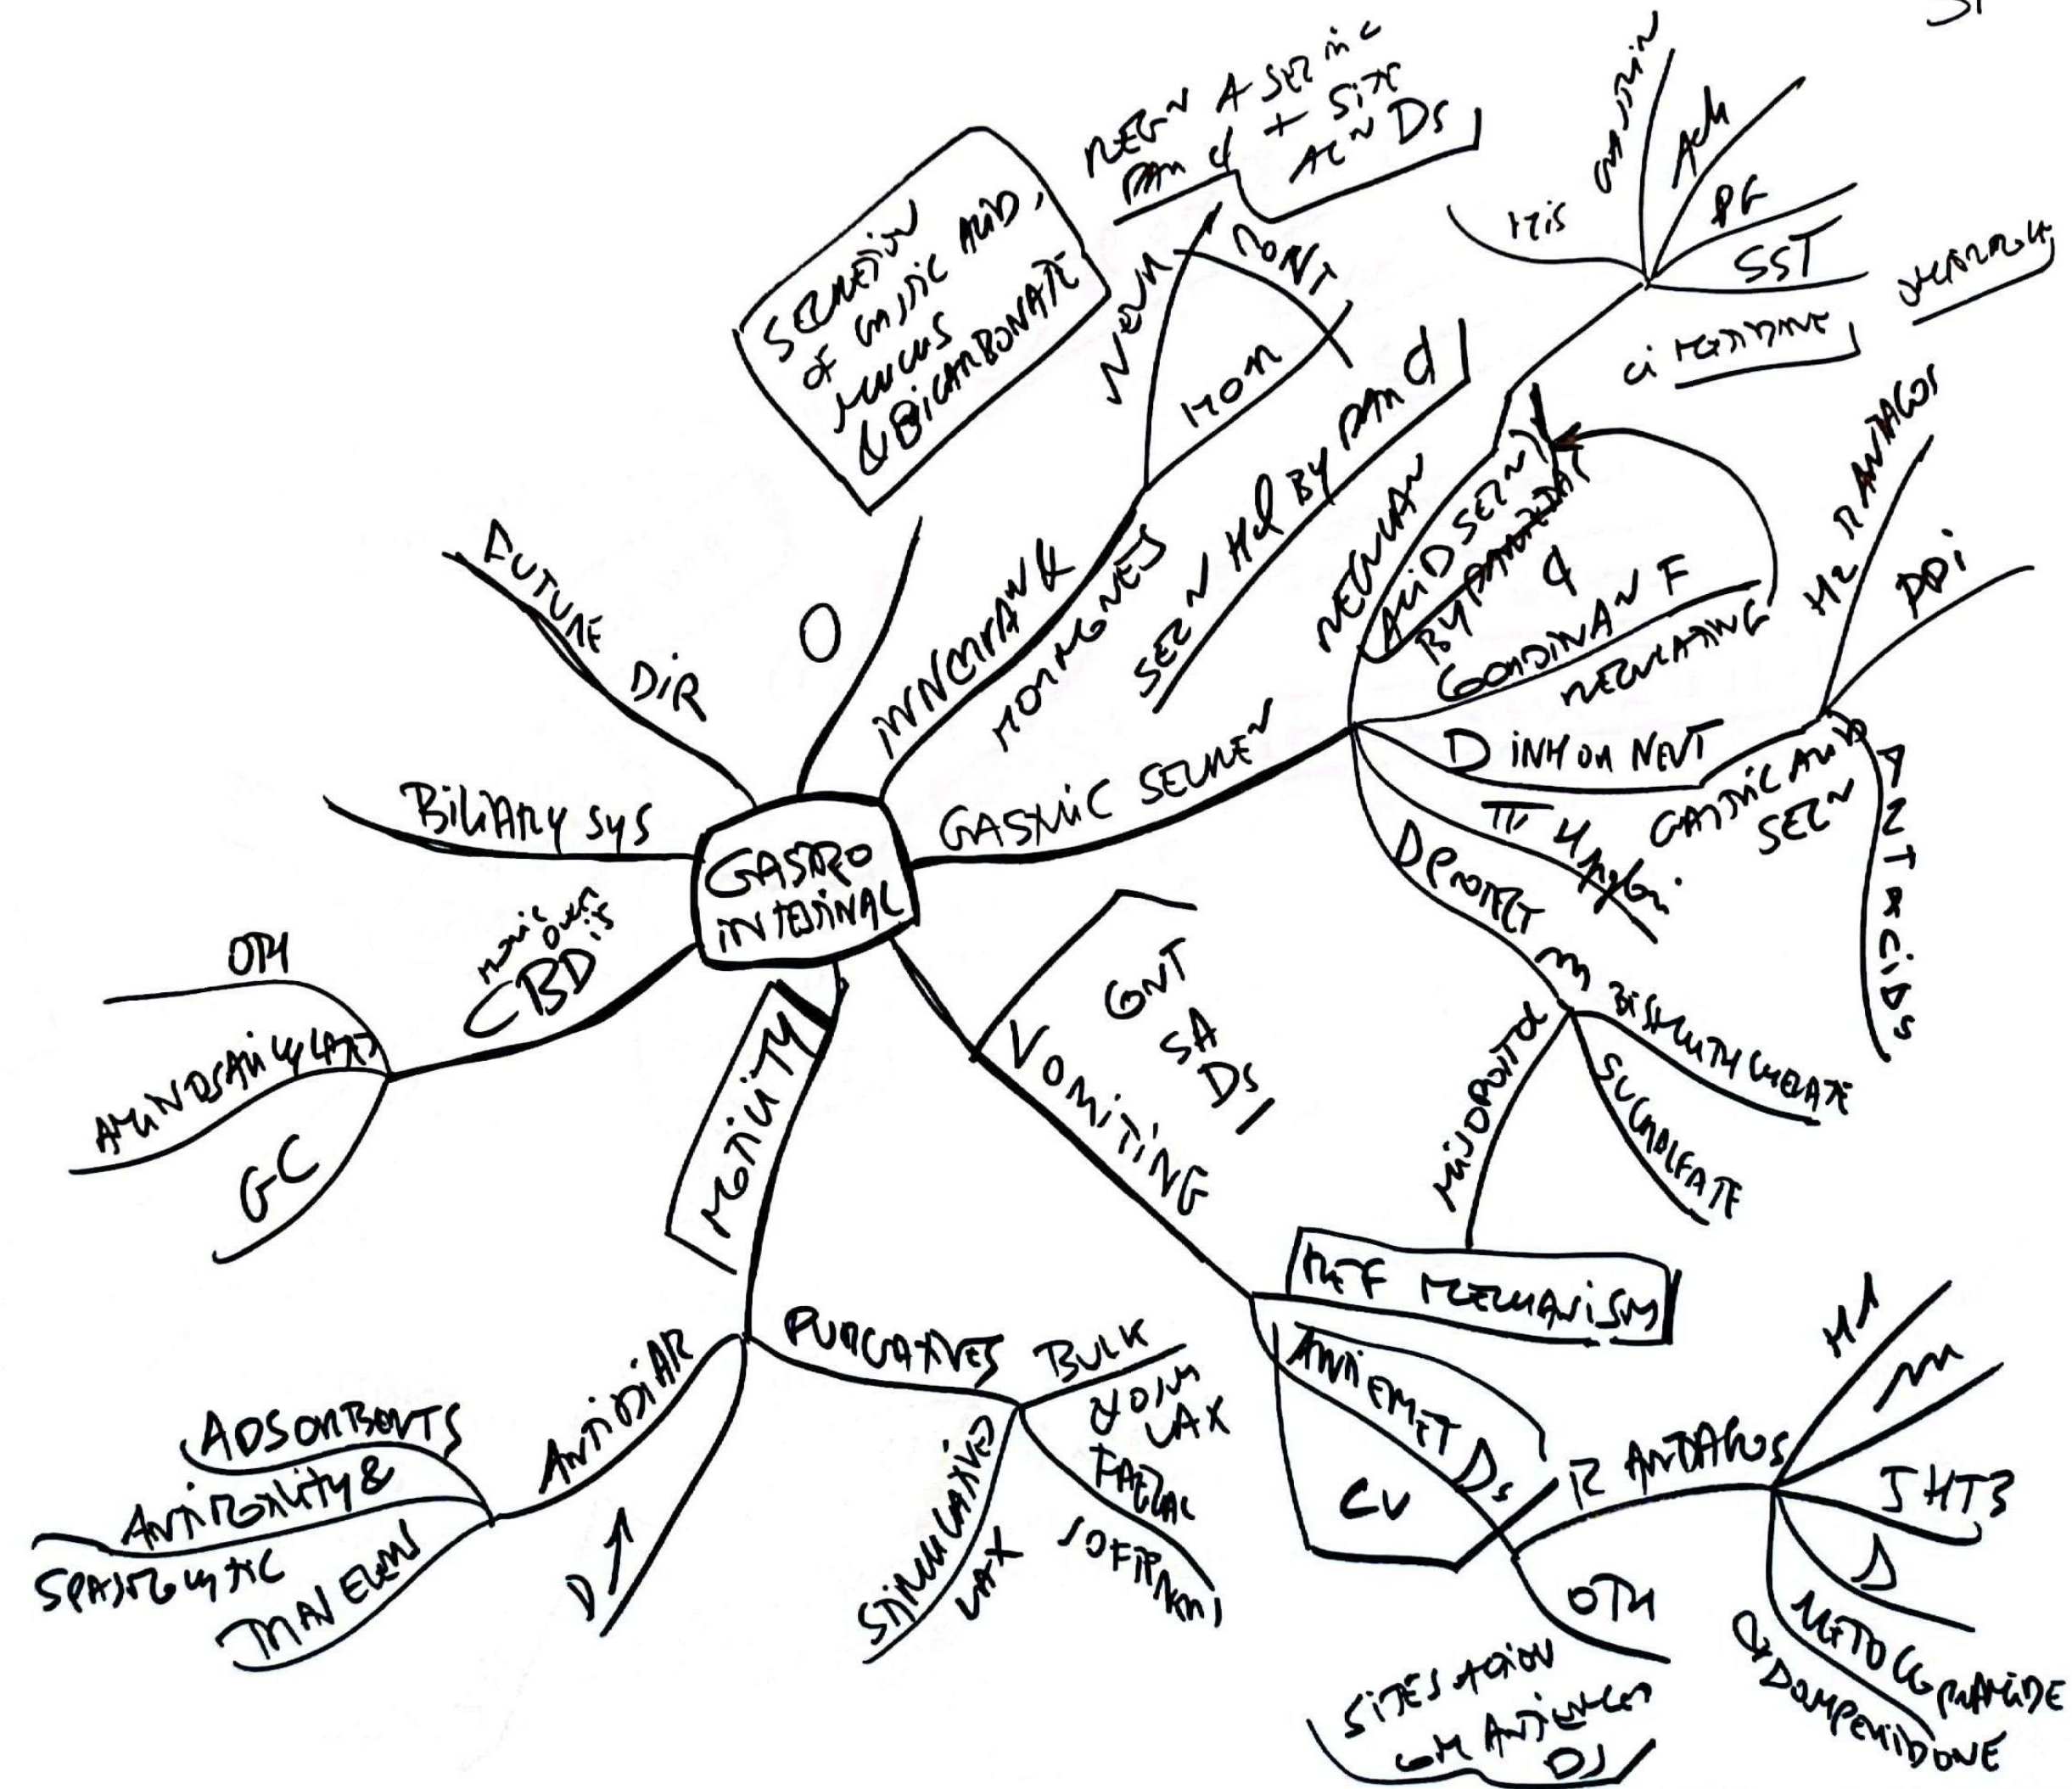 GASTRO
INTESTINAL
O
INNERVAN &
HORMONES
NEUR
HOR
CONT
SECRETION
OF GASTRIC ACID,
MUCUS
& BICARBONATE
REGN A SEC
+ SITE
ACN DS
SECN HCl BY PAR C
GASTRIC SECREN
REGULAN
ACID SECN
BY PARIETAL
C
His
GASTRIN
Ach
PG
SST
CiMETIDINE
COORDINAN F
REGULATING
D INH OR NEUT
GASTRIC ACID
SECN
H2 R ANTAGOS
PPi
ANTACIDS
TT H pylori
D PROTECT
M
BISMUTH CHELATE
SUCRALFATE
MISOPROSTOL
VOMITING
CONT
SA
DS
REF MECHANISM
ANTIEMET DS
CV
R ANTAGOS
H1
M
5HT3
D
METOCLOPRAMIDE
& DOMPERIDONE
OTH
SITES ACTION
COM ANTIEMET
DS
MOTILITY
PURGATIVES
BULK
& OSM
LAX
FAECAL
SOFTENERS
LAX
D ↑
ANTIDIAR
ADSORBENTS
ANTIMOTILITY &
SPASMOLYTIC
TRAVELERS
CBDis
OTH
AMINOSALICYLATES
GC
BILIARY SYS
FUTURE
DIR